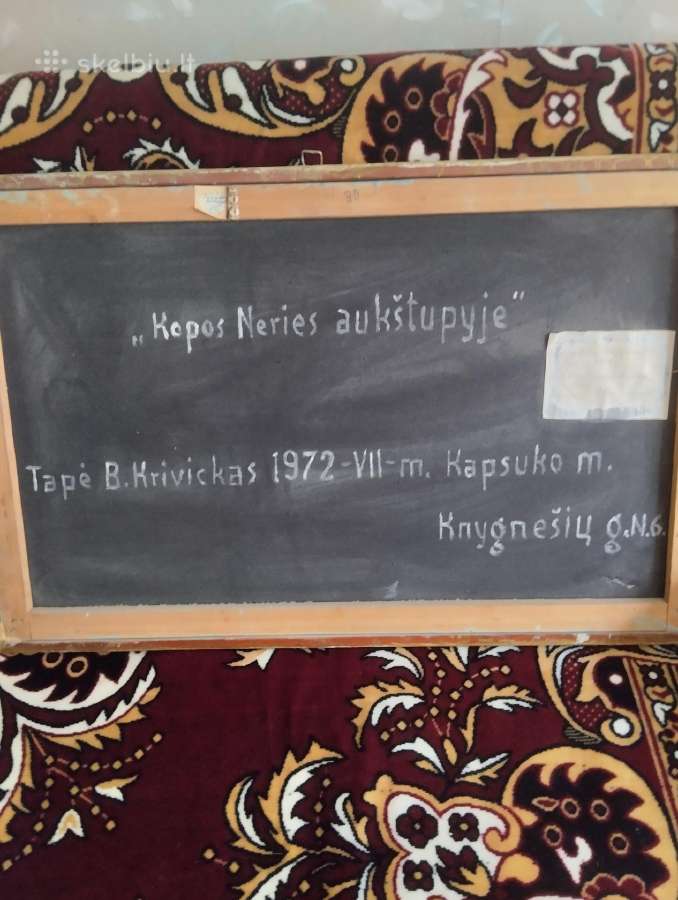 skelbiu.lt
„Kopos Neries aukštupyje"
Tapė B. Krivickas 1972-VII-m. Kapsuko m.
Knygnešių g. N. 6.